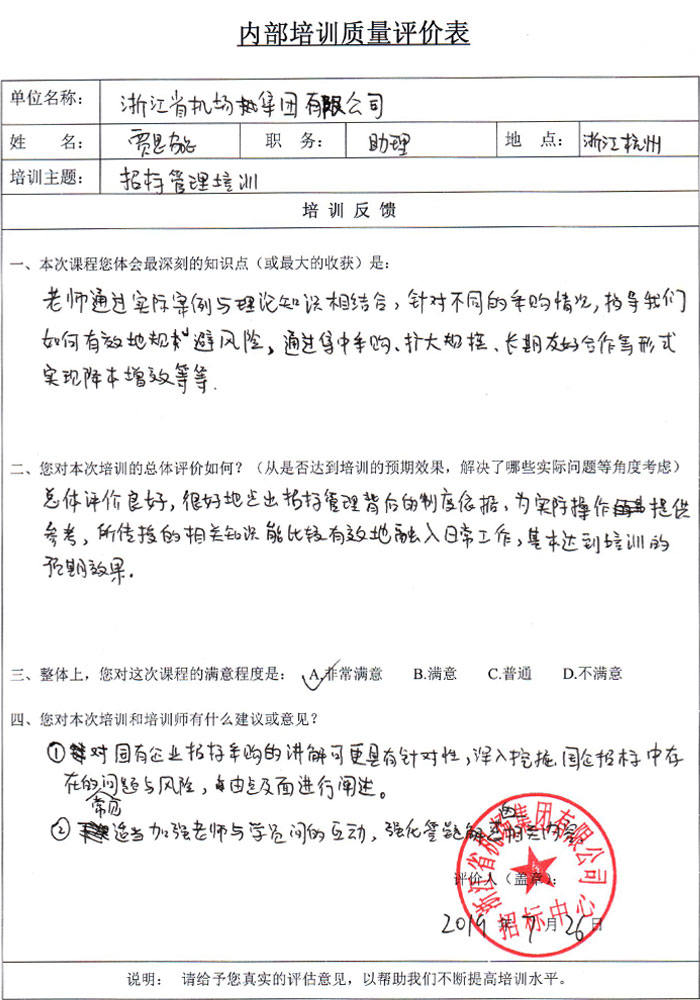 内部培训质量评价表
单位名称： 浙江省机场集团有限公司
姓 名： 贾思 职 务： 助理 地 点： 浙江杭州
培训主题： 招标管理培训
培 训 反 馈
一、本次课程您体会最深刻的知识点（或最大的收获）是：
老师通过实际案例与理论知识相结合，针对不同的采购情况，指导我们
如何有效地规避风险，通过集中采购、扩大规模、长期友好合作等形式
实现降本增效等等.
二、您对本次培训的总体评价如何？（从是否达到培训的预期效果，解决了哪些实际问题等角度考虑）
总体评价良好，很好地点出招标管理背后的制度依据，为实际操作提供
参考，所传授的相关知识能比较有效地融入日常工作，基本达到培训的
预期效果.
三、整体上，您对这次课程的满意程度是： A.非常满意 B.满意 C.普通 D.不满意
四、您对本次培训和培训师有什么建议或意见？
①对国有企业招标采购的讲解可更具有针对性，深入挖掘国企招标中存
在的常见问题与风险，由点及面进行阐述。
②适当加强老师与学员间的互动，强化答题解惑相关内容.
浙江省机场集团有限公司
招标中心
评价人（盖章）：
2019 年 7 月 26 日
说明： 请给予您真实的评估意见，以帮助我们不断提高培训水平。